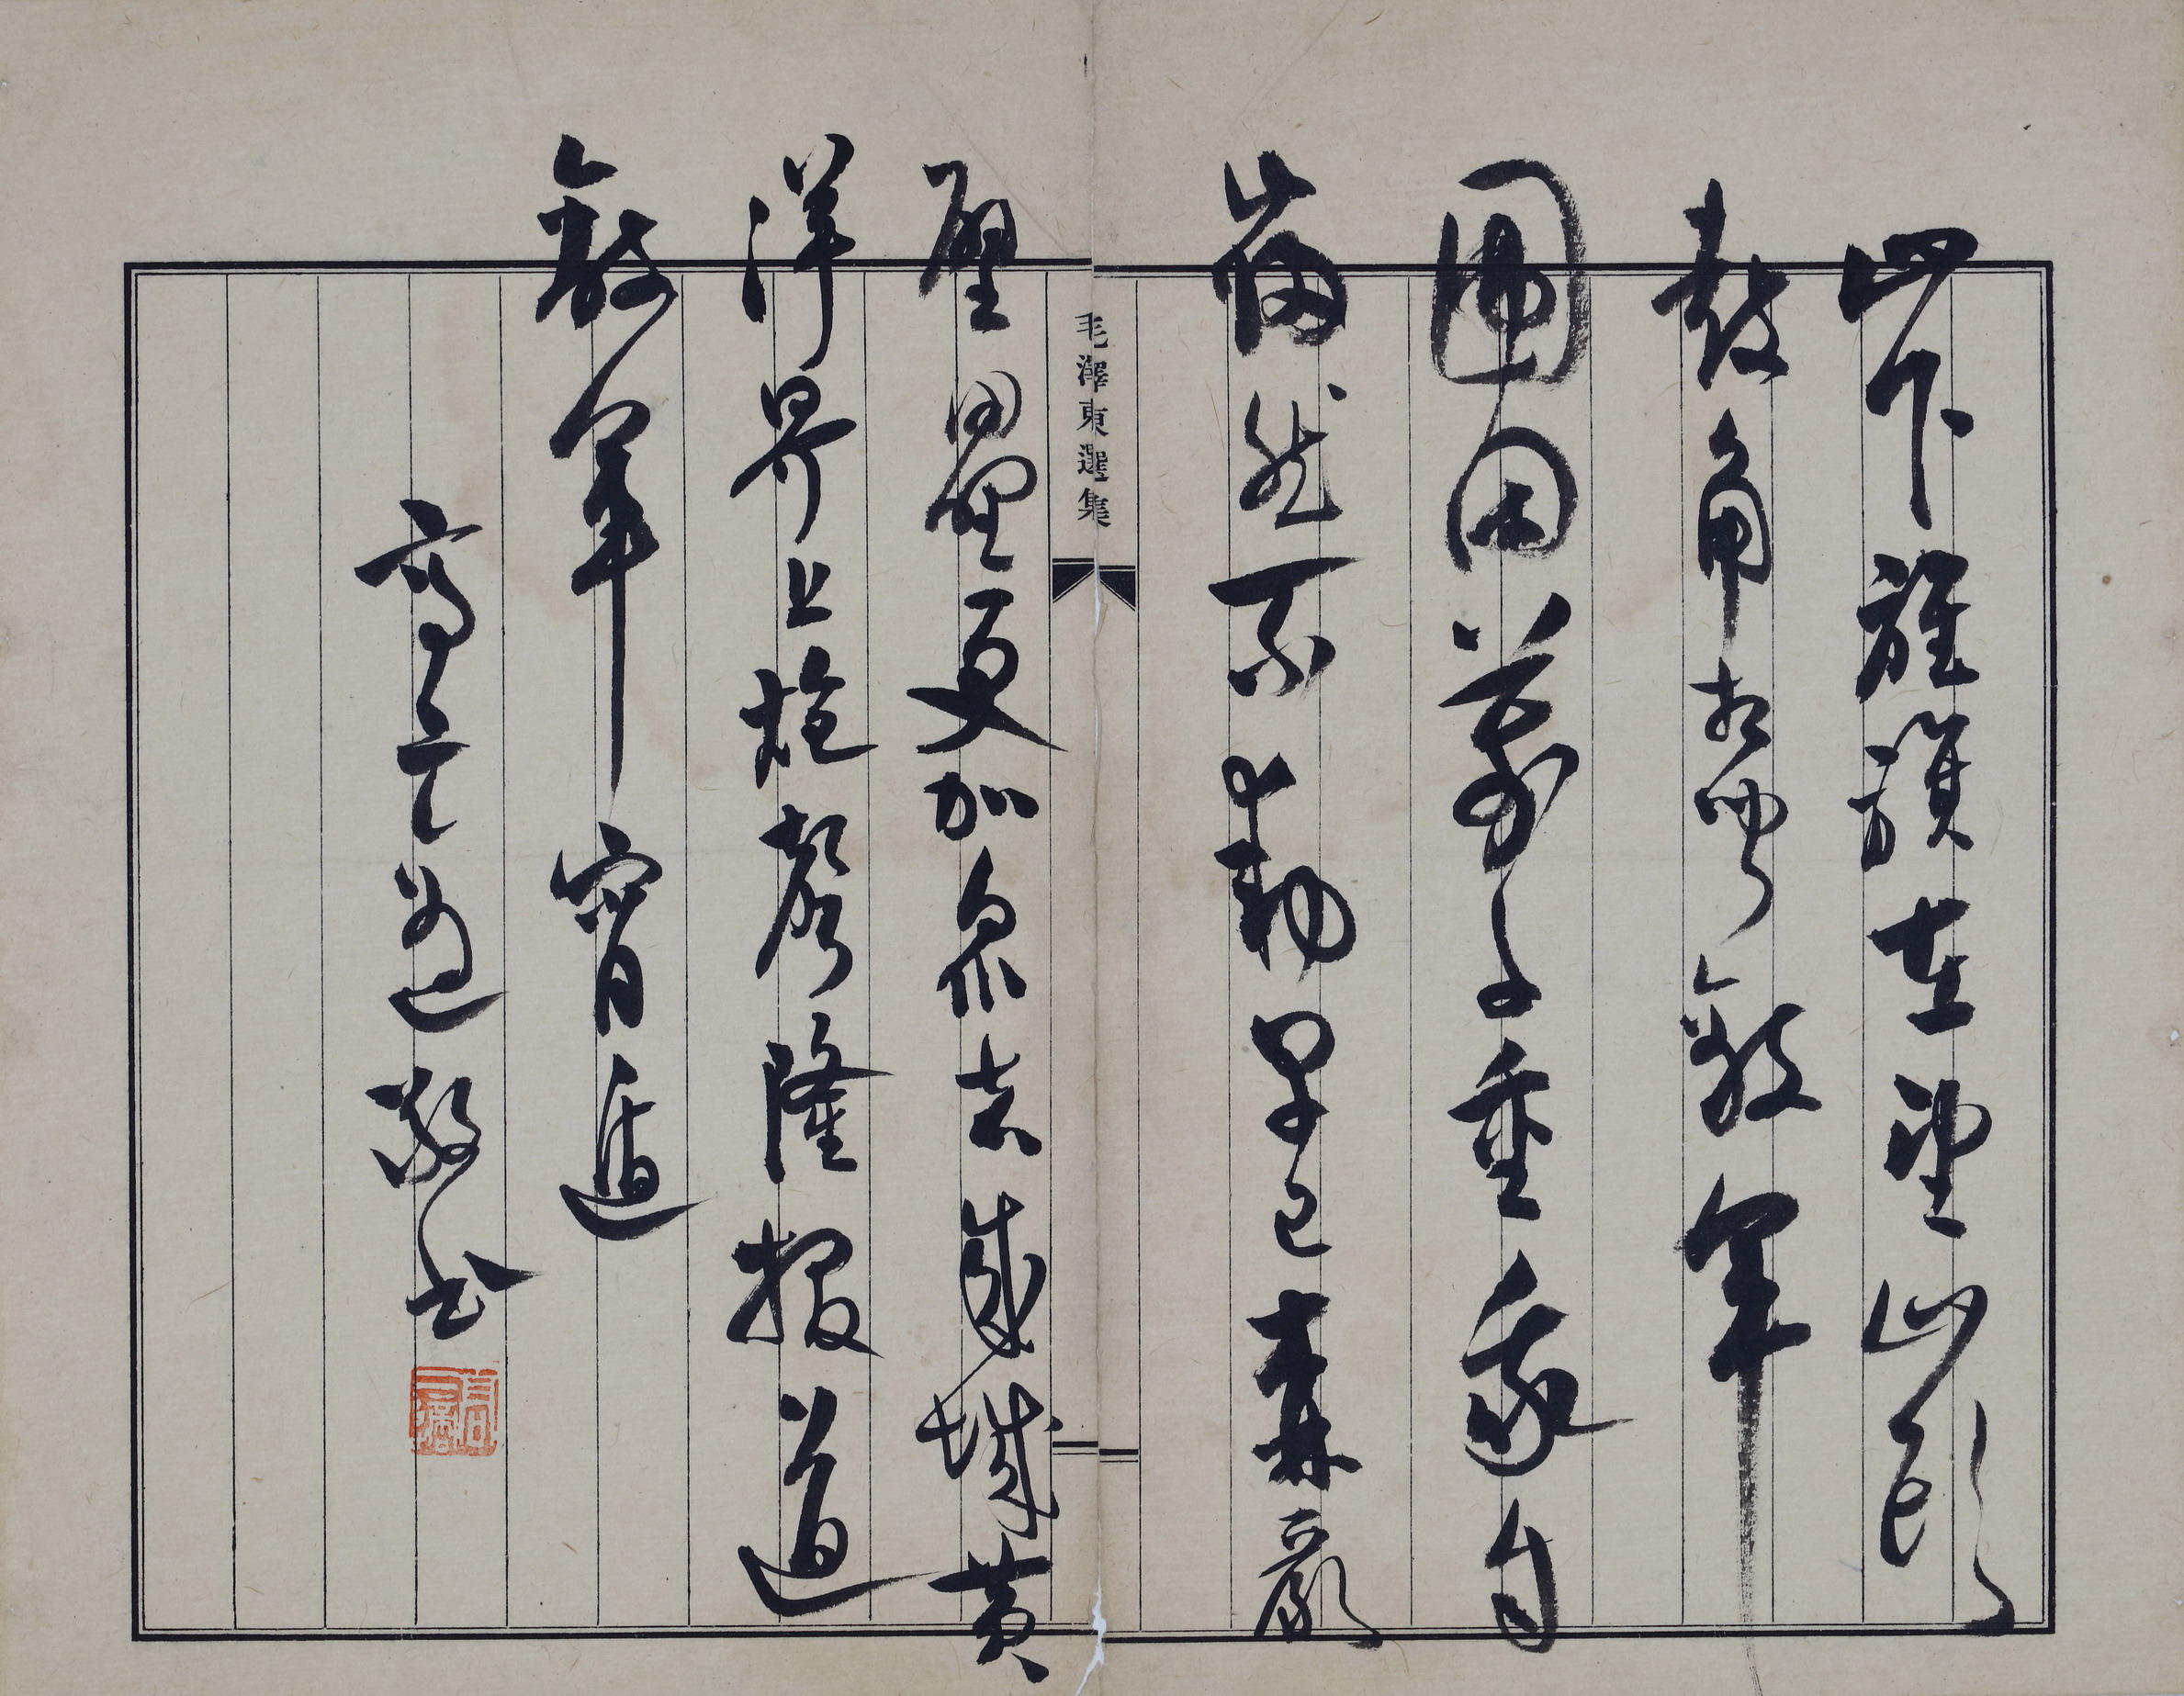 山下旌旗在望山頭
鼓角相聞敵軍
圍困萬千重我自
巋然不動早已森嚴
毛澤東選集
壁壘更加衆志成城黄
洋界上炮聲隆報道
敵軍宵遁
高二適敬書